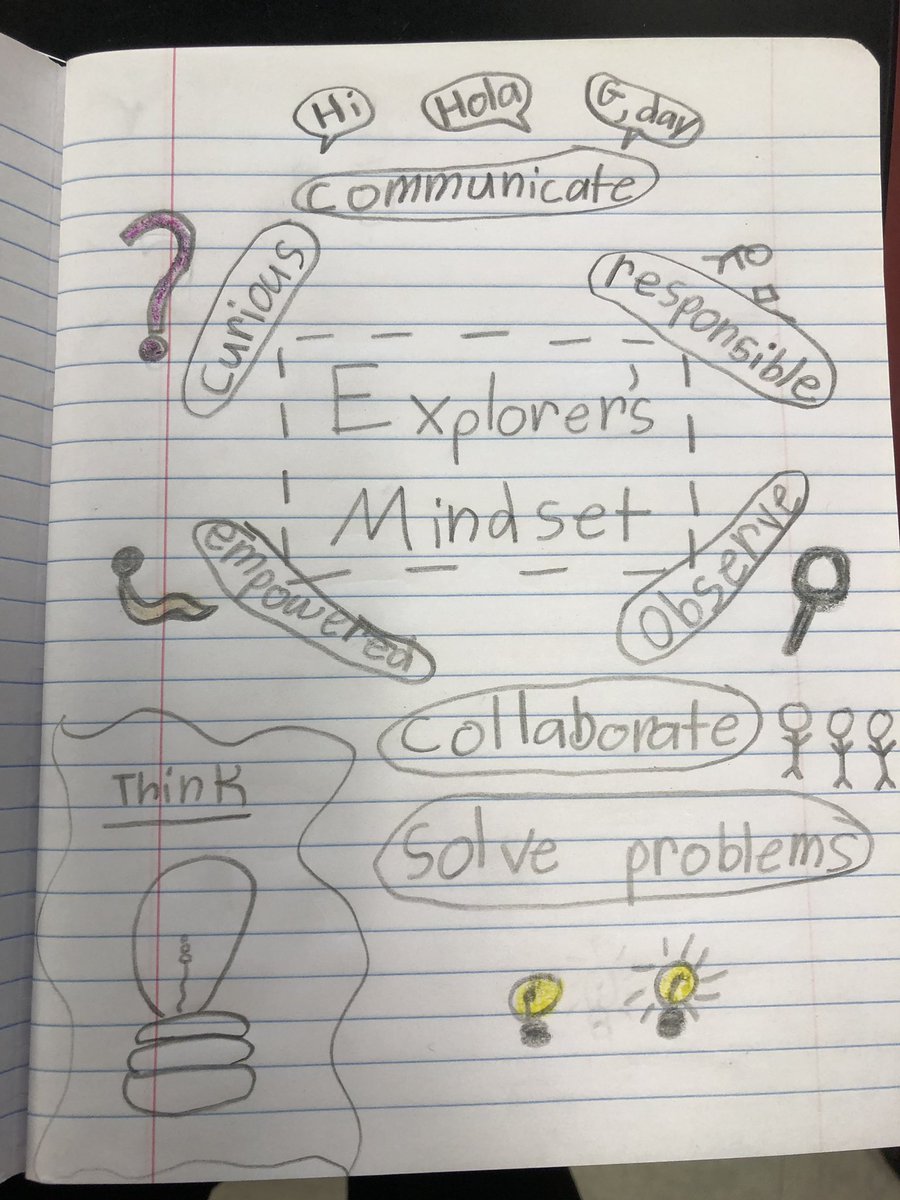 Hi Hola G'day
communicate
curious
responsible
Explorer's
Mindset
empowered
Observe
collaborate
Think
Solve problems